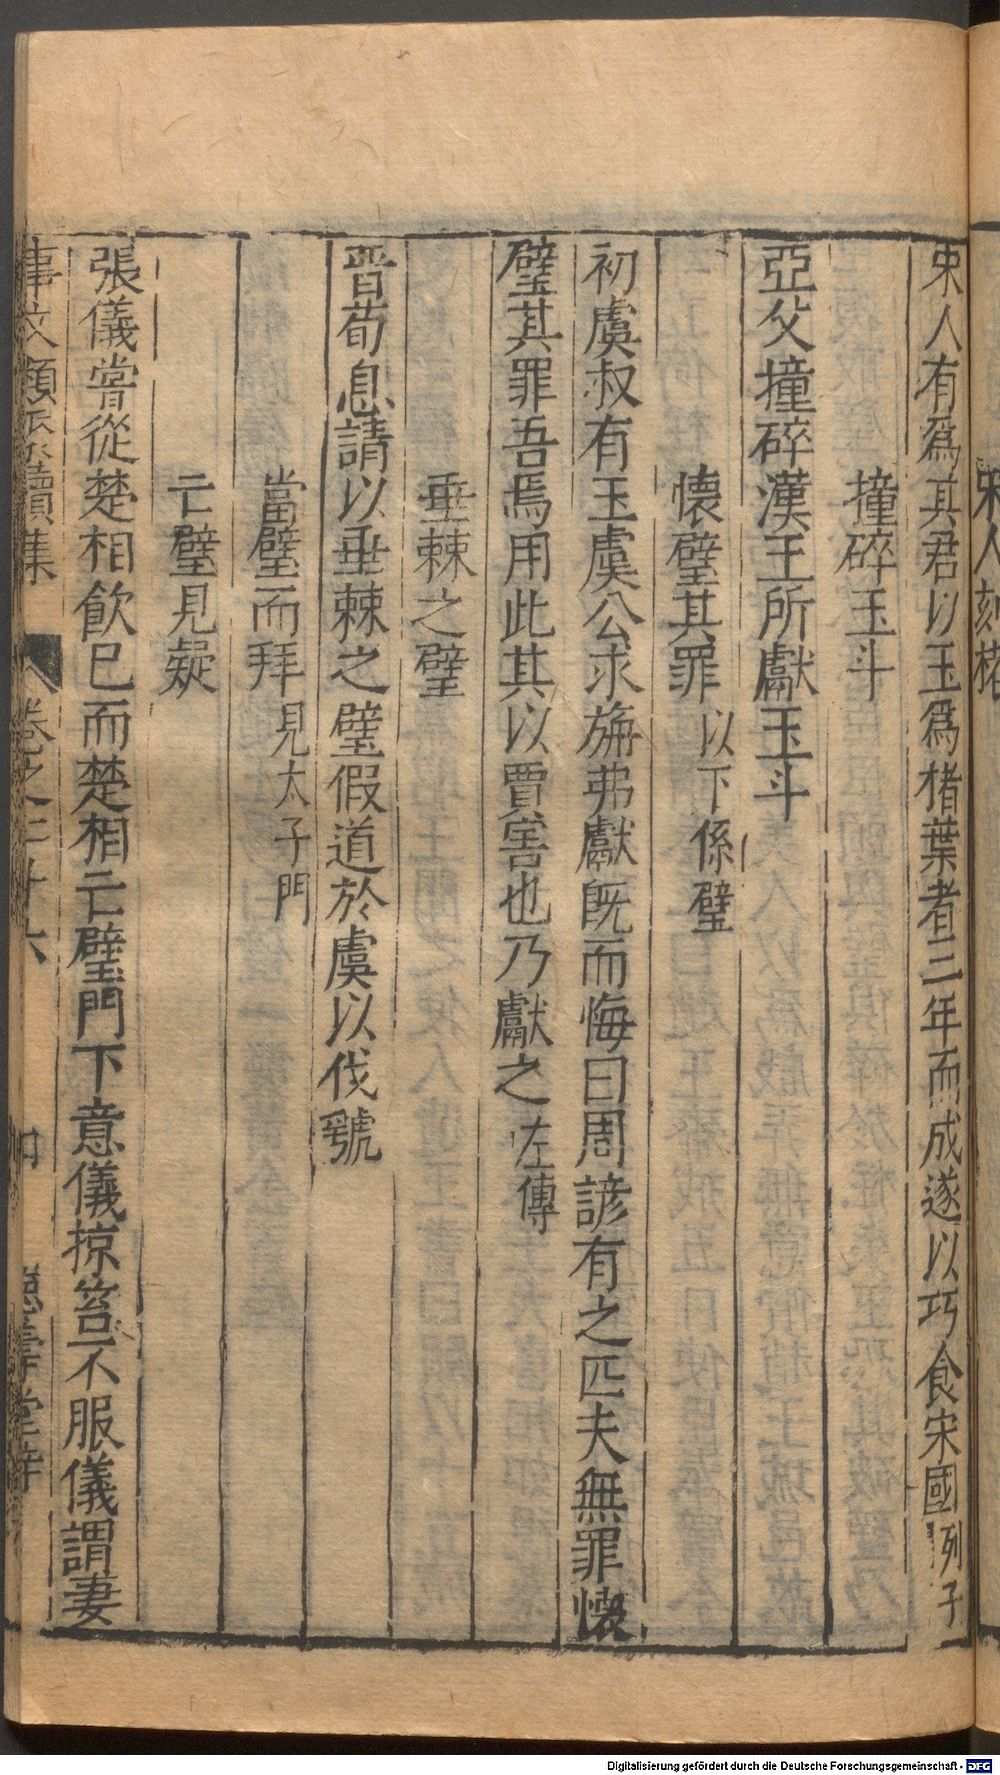 宋人刻楮
宋人有爲其君以玉爲楮葉者三年而成遂以巧食宋國列子
撞碎玉斗
亞父撞碎漢王所獻玉斗
懷璧其罪以下係璧
初虞叔有玉虞公求旃弗獻旣而悔曰周諺有之匹夫無罪懷
璧其罪吾焉用此其以賈害也乃獻之左傳
垂棘之璧
晋荀息請以垂棘之璧假道於虞以伐虢
當璧而拜見太子門
亡璧見疑
張儀嘗從楚相飲已而楚相亡璧門下意儀掠笞不服儀謂妻
事文類聚續集 卷之二十六 四 德壽堂梓
Digitalisierung gefördert durch die Deutsche Forschungsgemeinschaft - DFG